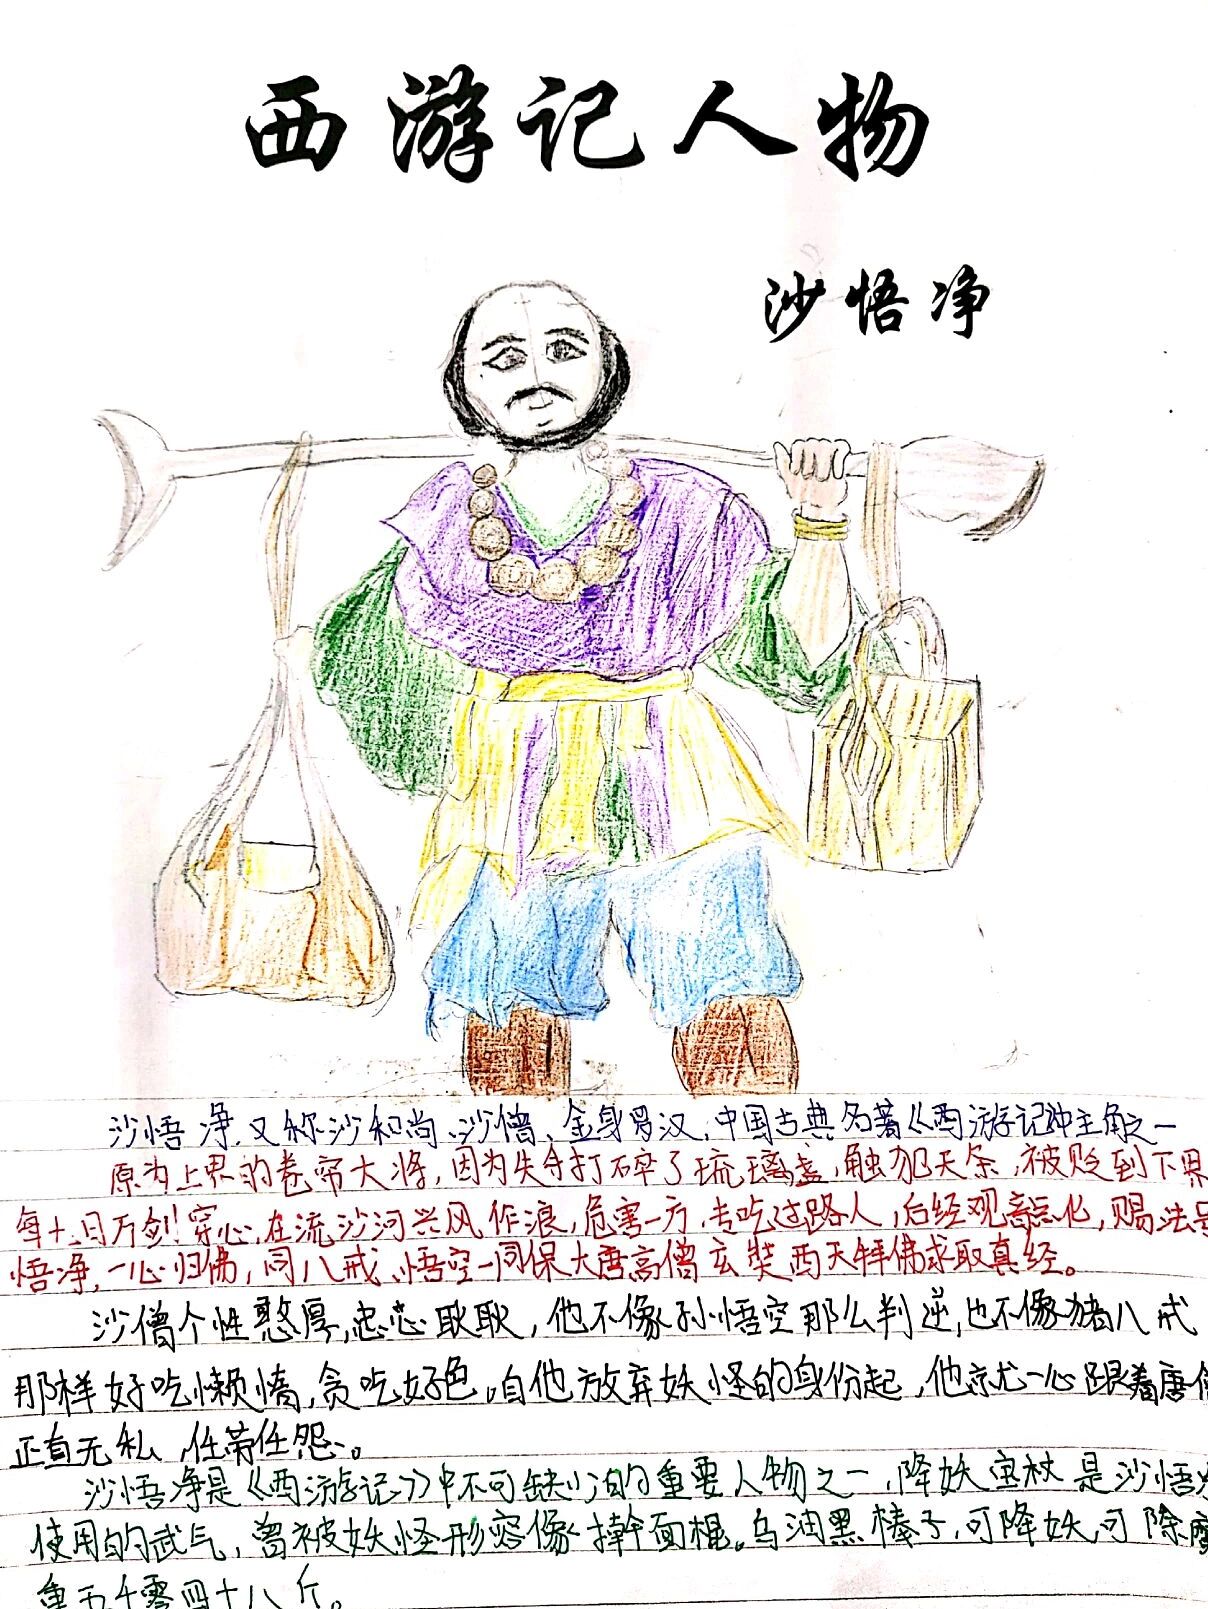 西游记人物
沙悟净
沙悟净,又称沙和尚、沙僧、金身罗汉,中国古典名著《西游记》主角之一
原为上界的卷帘大将,因为失手打碎了琉璃盏,触犯天条,被贬到下界
每七日万剑穿心,在流沙河兴风作浪,危害一方,专吃过路人,后经观音点化,赐法号
悟净,一心归佛,同八戒、悟空一同保大唐高僧玄奘西天拜佛求取真经。
沙僧个性憨厚,忠心耿耿,他不像孙悟空那么判逆,也不像猪八戒
那样好吃懒惰,贪吃好色。自他放弃妖怪的身份起,他就一心跟着唐僧
正直无私,任劳任怨。
沙悟净是《西游记》中不可缺少的重要人物之一,降妖宝杖是沙悟净
使用的武气,曾被妖怪形容像擀面棍。乌油黑棒子,可降妖,可除魔
重五千零四十八斤。